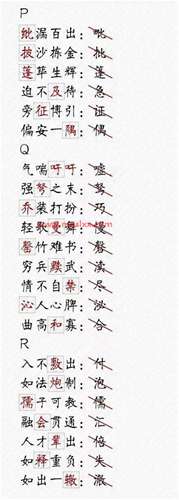 P
纰漏百出：毗
披沙拣金：批
蓬荜生辉：篷
迫不及待：急
旁征博引：证
偏安一隅：偶
Q
气喘吁吁：嘘
强弩之末：驽
乔装打扮：巧
轻歌曼舞：慢
罄竹难书：磬
穷兵黩武：渎
情不自禁：尽
沁人心脾：泌
曲高和寡：合
R
入不敷出：付
如法炮制：泡
孺子可教：儒
融会贯通：汇
人才辈出：倍
如释重负：失
如出一辙：澈